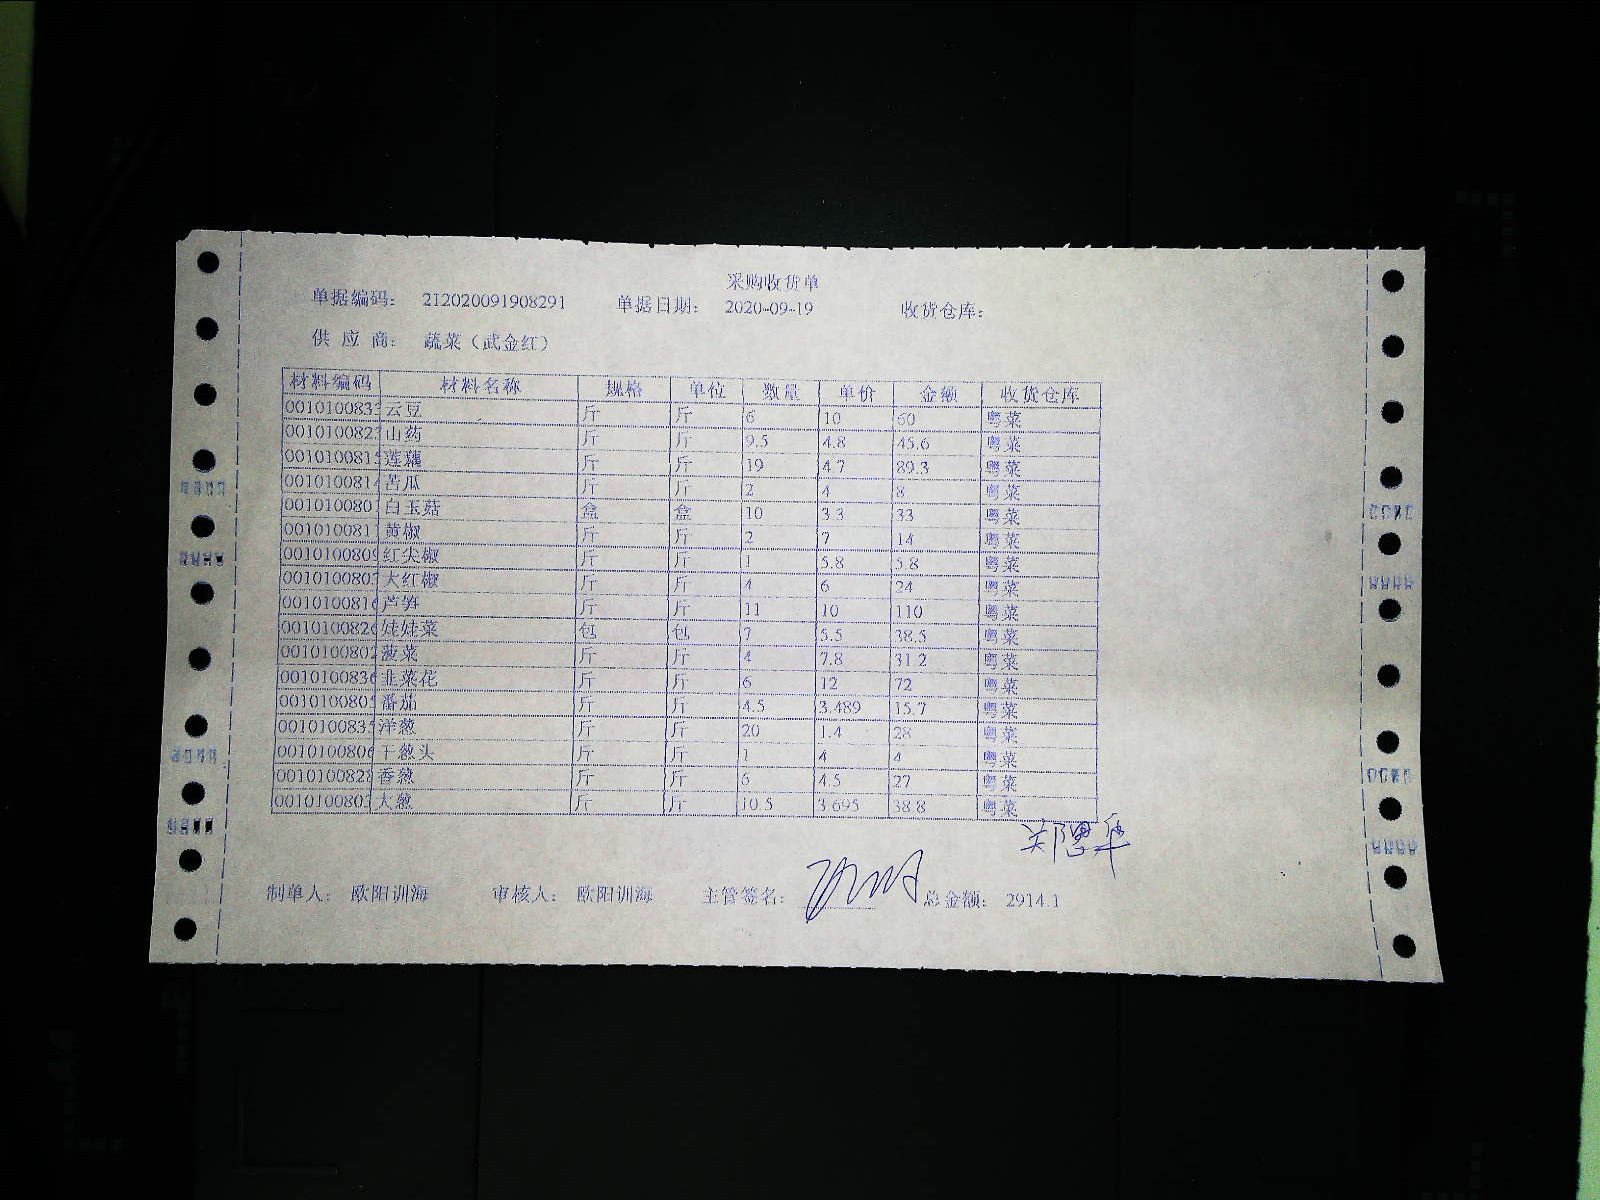 采购收货单
单据编码： 212020091908291 单据日期： 2020-09-19 收货仓库：
供 应 商： 蔬菜（武金红）
材料编码 材料名称 规格 单位 数量 单价 金额 收货仓库
001010083 云豆 斤 斤 6 10 60 粤菜
001010082 山药 斤 斤 9.5 4.8 45.6 粤菜
001010081 莲藕 斤 斤 19 4.7 89.3 粤菜
001010081 苦瓜 斤 斤 2 4 8 粤菜
001010080 白玉菇 盒 盒 10 3.3 33 粤菜
001010081 黄椒 斤 斤 2 7 14 粤菜
001010080 红尖椒 斤 斤 1 5.8 5.8 粤菜
001010080 大红椒 斤 斤 4 6 24 粤菜
001010081 芦笋 斤 斤 11 10 110 粤菜
001010082 娃娃菜 包 包 7 5.5 38.5 粤菜
001010080 菠菜 斤 斤 4 7.8 31.2 粤菜
001010083 韭菜花 斤 斤 6 12 72 粤菜
001010080 番茄 斤 斤 4.5 3.489 15.7 粤菜
001010083 洋葱 斤 斤 20 1.4 28 粤菜
001010080 干葱头 斤 斤 1 4 4 粤菜
001010082 香葱 斤 斤 6 4.5 27 粤菜
001010080 大葱 斤 斤 10.5 3.695 38.8 粤菜
制单人： 欧阳训海 审核人： 欧阳训海 主管签名： 总金额： 2914.1